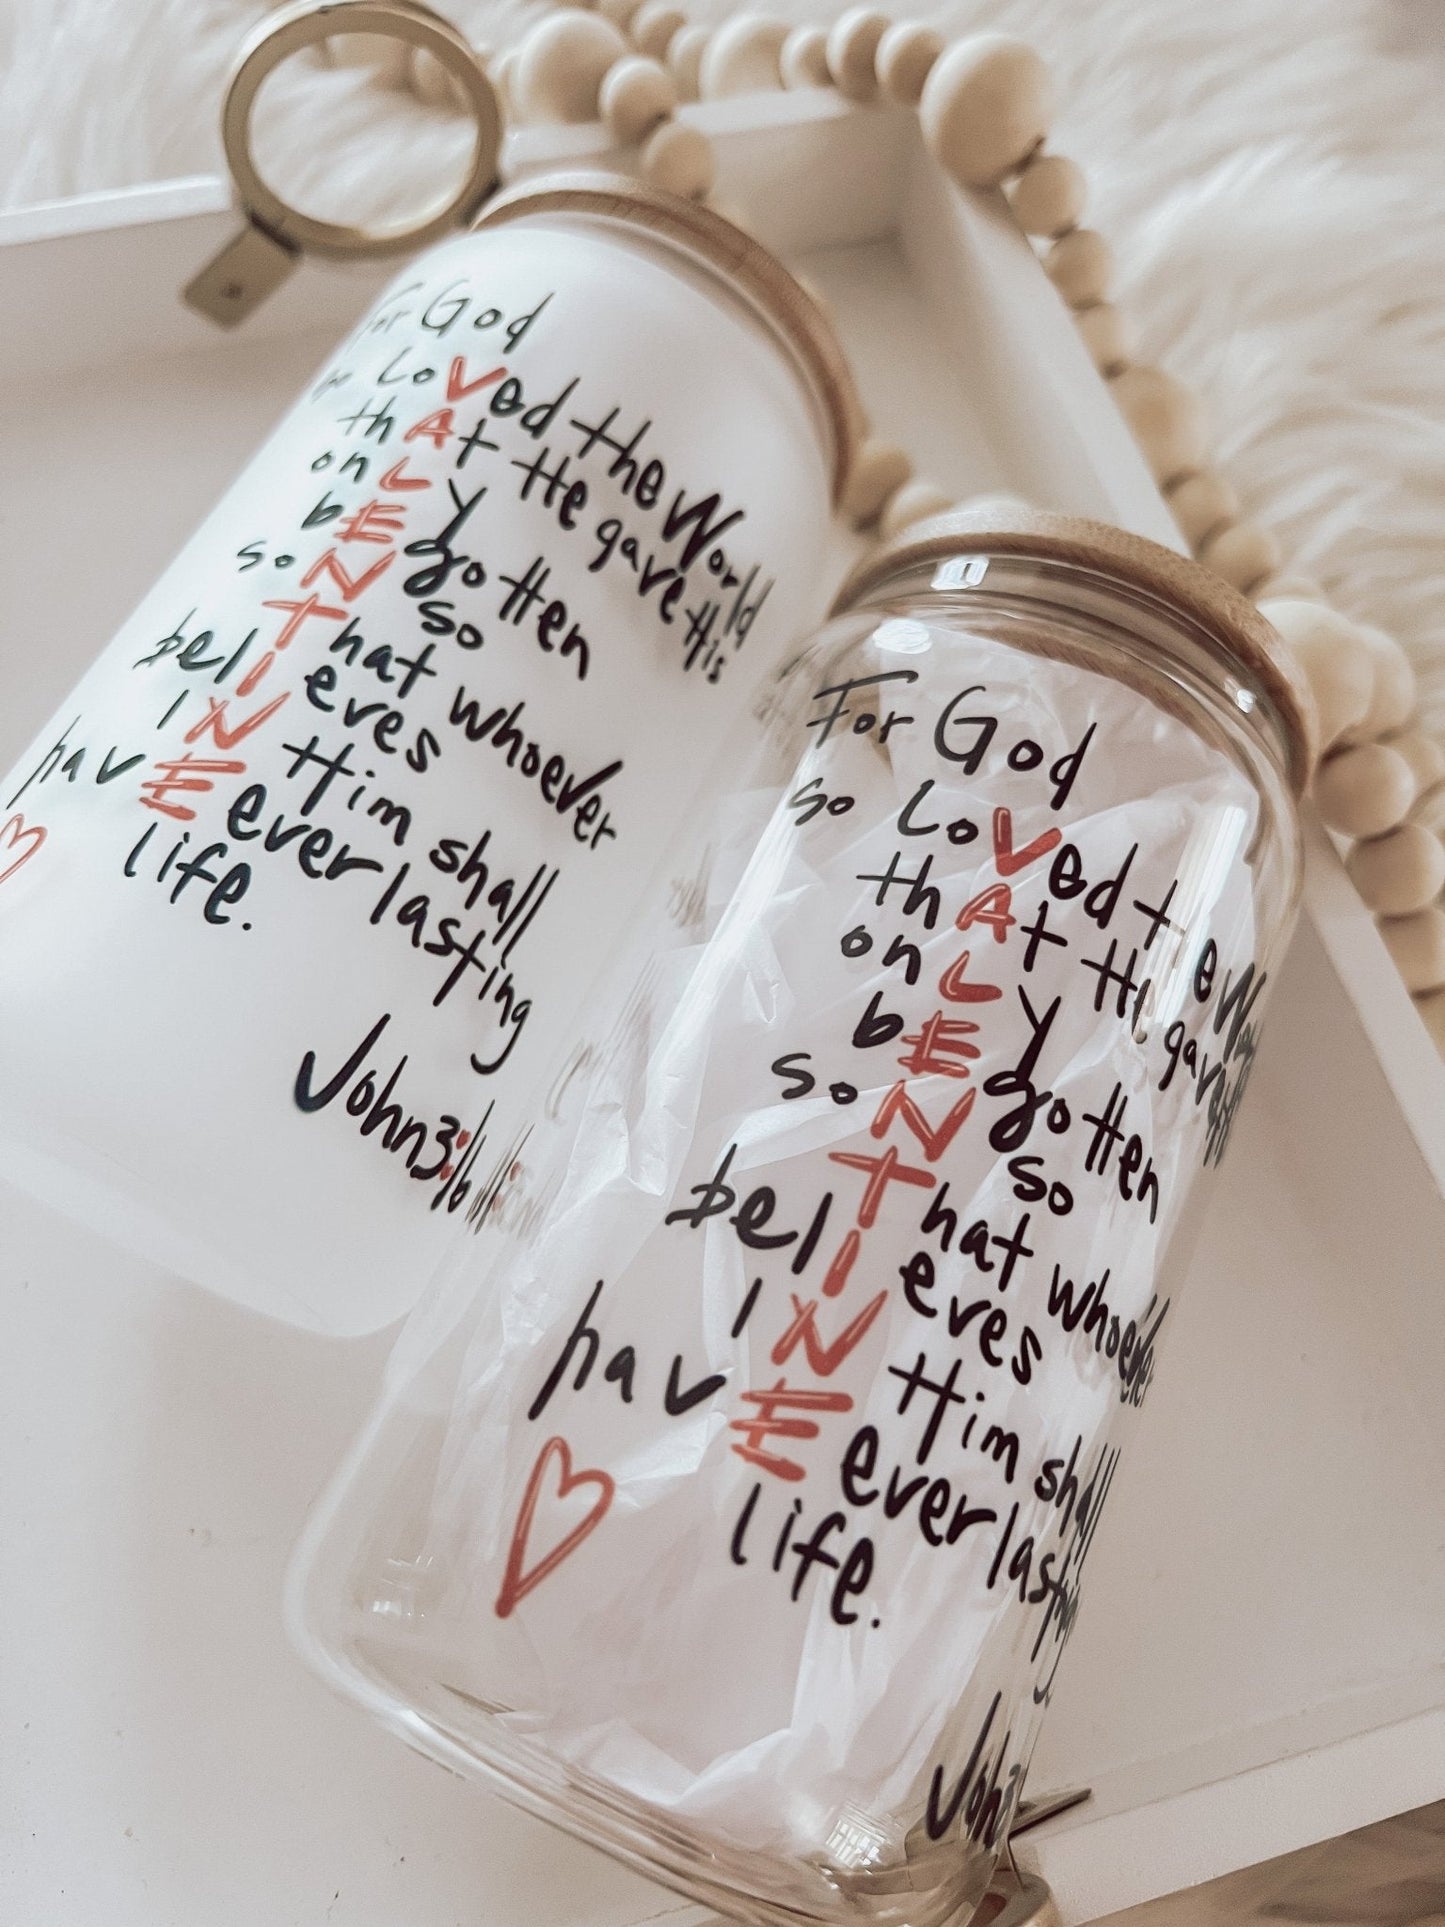 For God
so LoVed the World
thAt He gave His
onLy
bEgotten
soN so
That whoever
belIeves
IN Him shall
havE everlasting
life.
John3:16
For God
so LoVed the
thAt He gave
onLy
bEgotten
soN so
That whoever
belIeves
IN Him shall
havE everlasting
life.
John